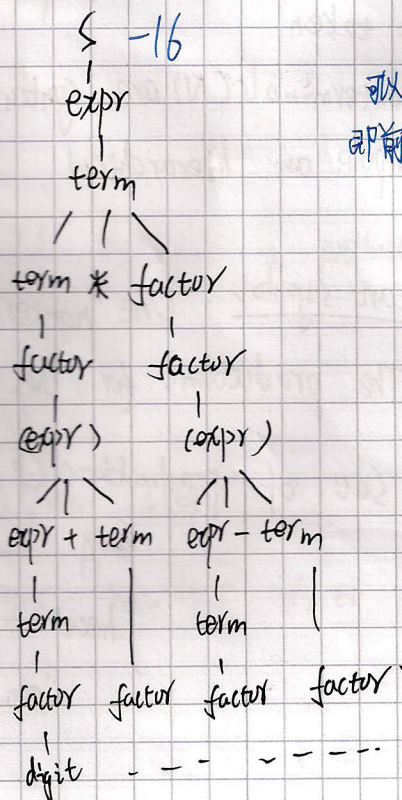 S -16
expr
可以
即前
term
term * factor
factor factor
(expr) (expr)
expr + term expr - term
term term
factor factor factor factor
digit